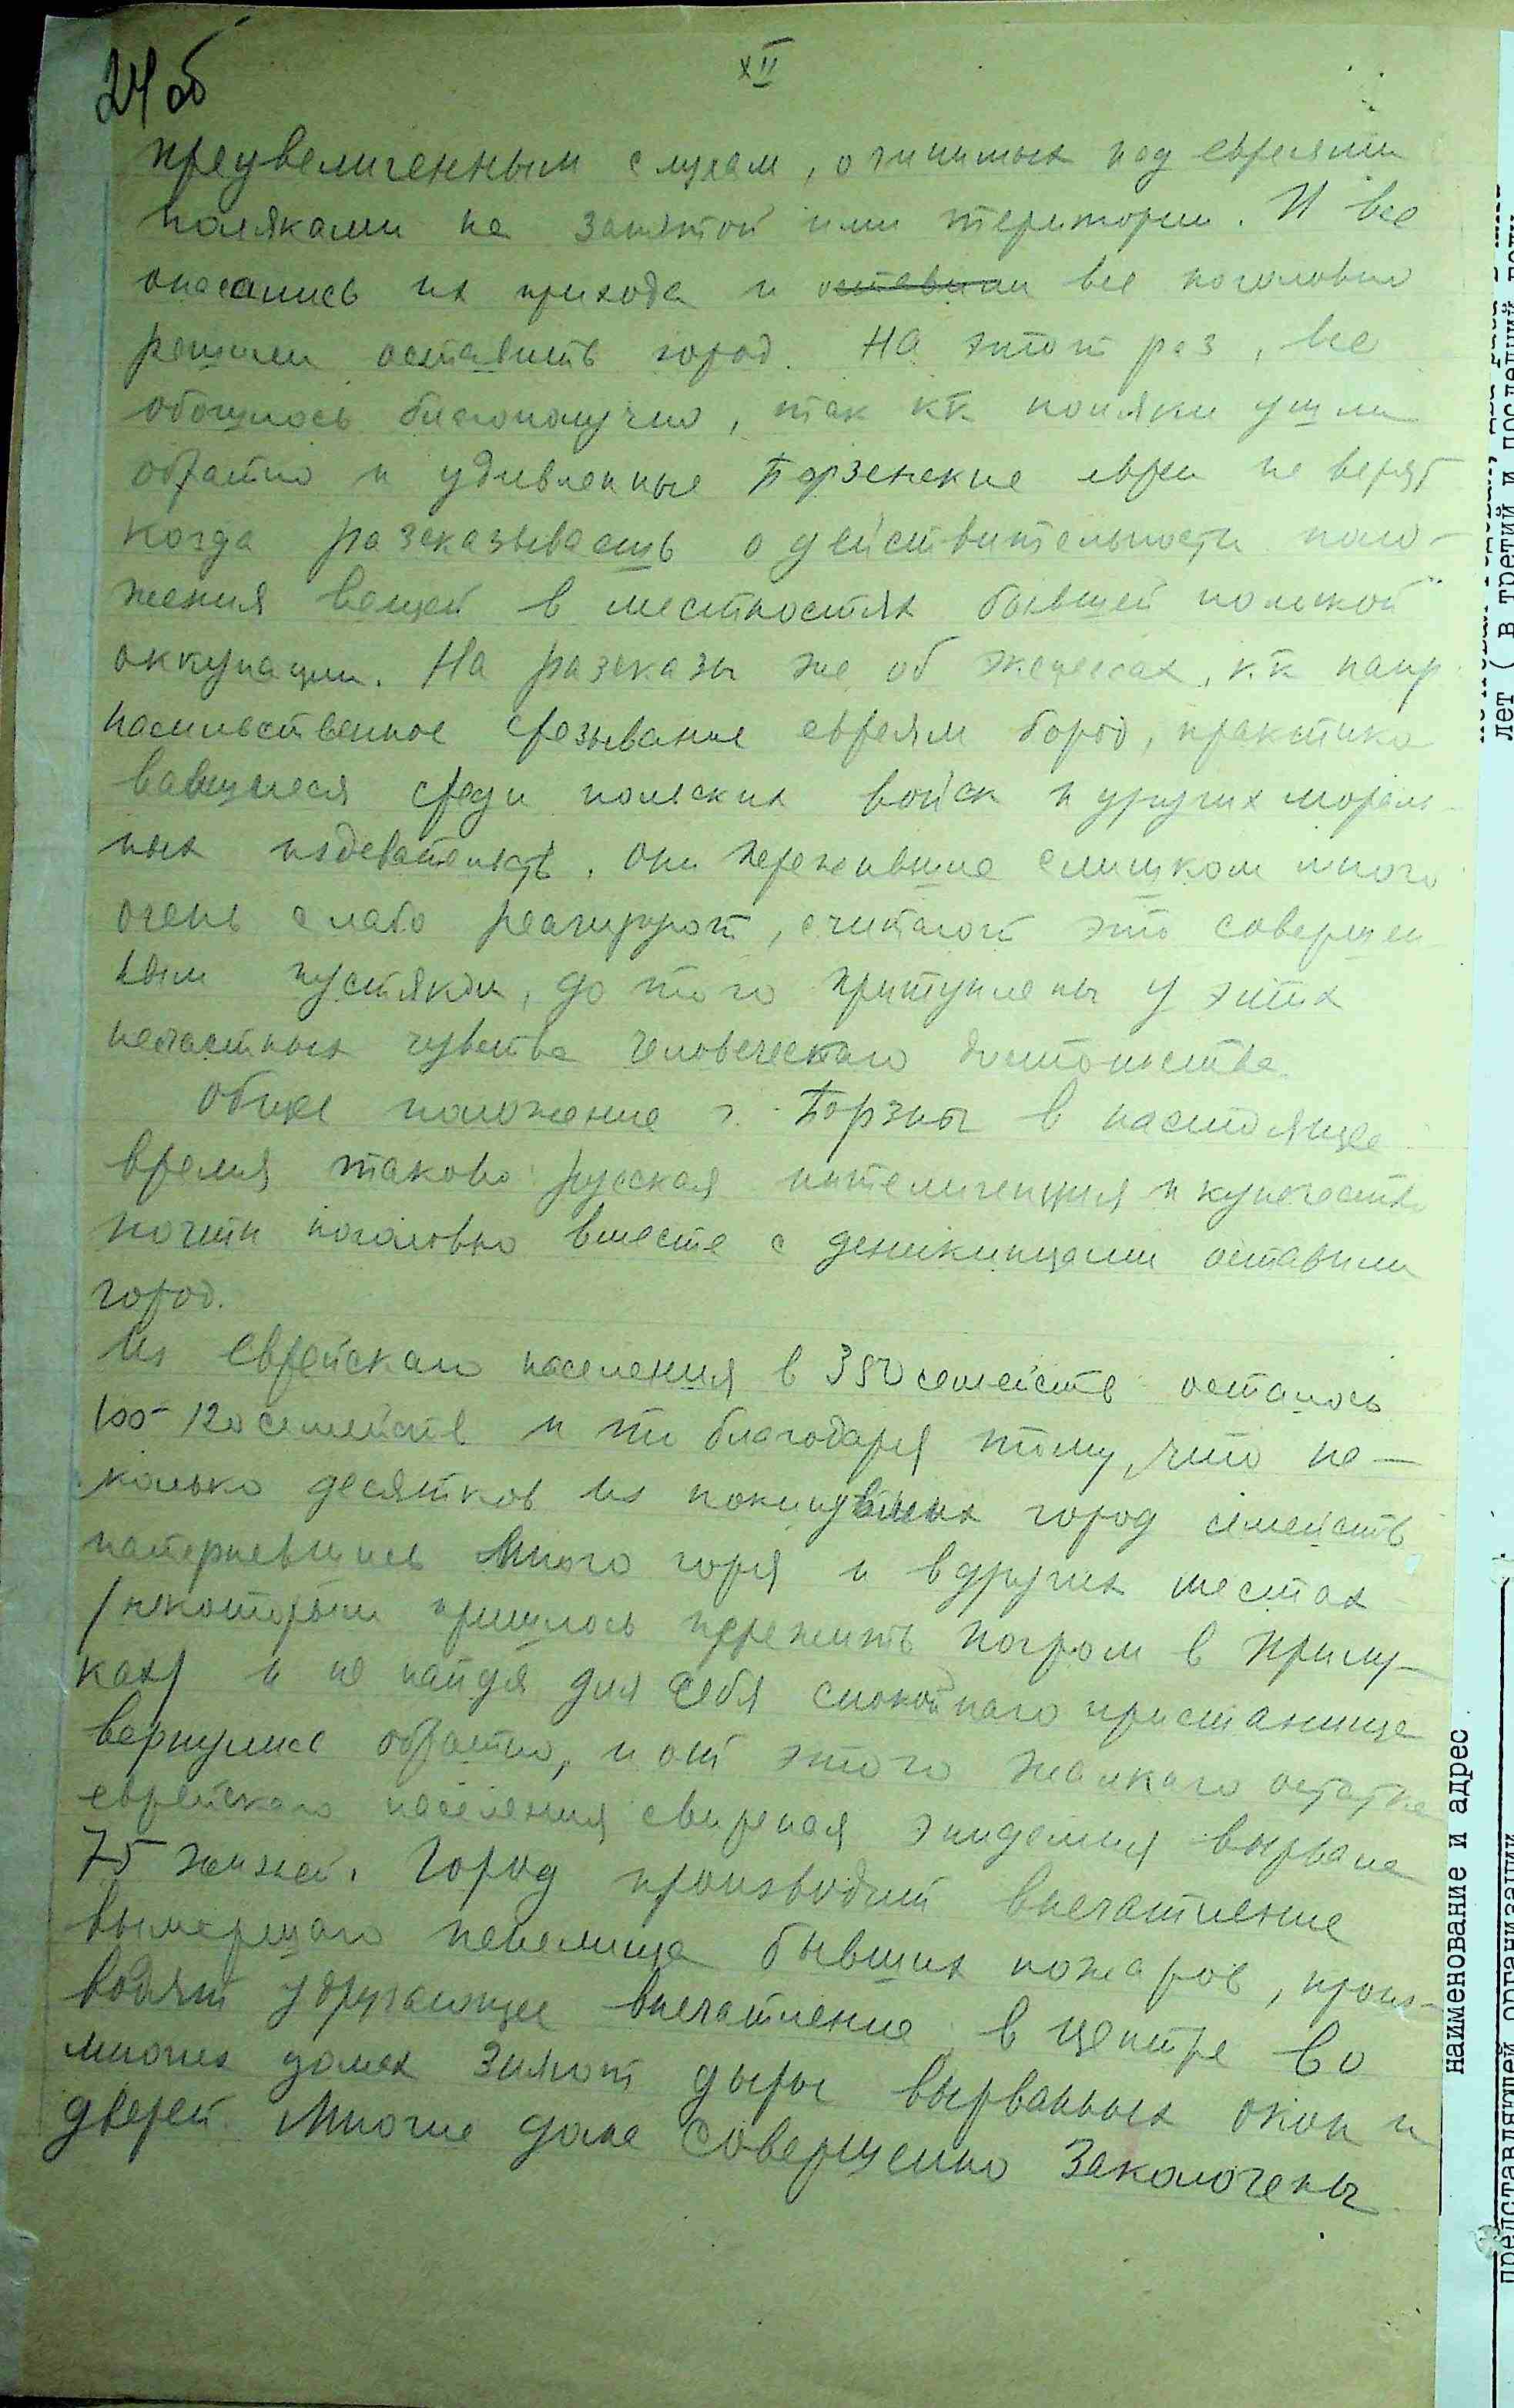 24об
XII
преувеличенным слухам, о чинимых над евреями
поляками на занятой ими територии. И все
опасались их прихода и оставили все поголовно
решили оставить город. На этот раз, все
обошлось благополучно, так кк поляки ушли
обратно и удивленные Борзенские евреи не верят
когда разсказываешь о действительности поло-
жения вещей в местностях бывшей польской
оккупации. На разсказы же об эксцессах, кк напр.
насильственное срезывание евреям бород, практико
вавшиеся среди польских войск и других мораль-
ных издевательств. Они пережившие слишком много
очень слабо реагируют, считают это совершен
ным пустяком, до того притуплены у этих
несчастных чувства человеческаго достоинства.
Общее положение г. Борзны в настоящее
время таково: русская интелигенция и купечество
почти поголовно вместе с деникинцами оставили
город.
Из еврейскаго населения в 350 семейств осталось
100-120 семейств и то благодаря тому, что не-
колько десятков из покинувших город семейств
натерпевшись много горя и в других местах
/некоторым пришлось пережить погром в Прилу-
ках/ и не найдя для себя спокойнаго пристанища
вернулись обратно, и от этого жалкаго остатка
еврейскаго населения свирепая эпидемия вырвала
75 жизней. Город производит впечатление
вымершаго пепелища бывших пожаров, произ-
водят удручающее впечатление, в центре во
многих домах зияют дыры вырванных окон и
дверей. Многие дома совершенно заколочены
лет ( в третий и последний
наименование и адрес
представляющей организации